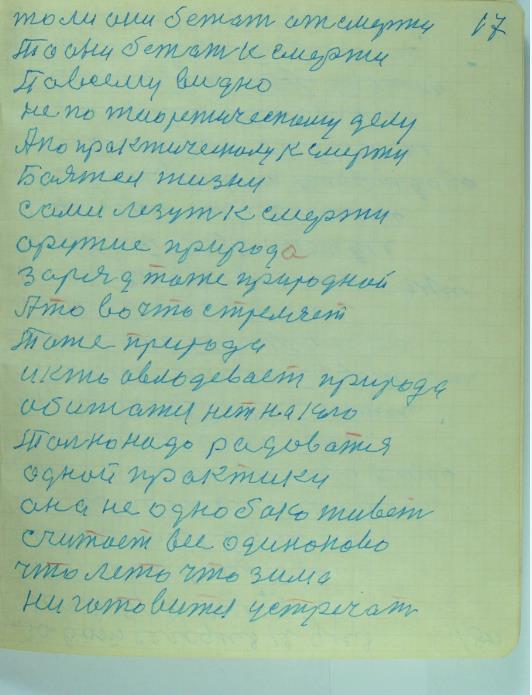 то ли они бежат от смерти 17
То они бежат к смерти
По всему видно
не по теоретическому делу
А по практическому к смерти
Боятся жизни
сами лезут к смерти
оружие природа
заряд тоже природной
А то во что стремлет
Тоже природа
и кто овлодевает природа
обижатя нет на кого
Толко надо радоватя
одной практики
она не однобоко живет
считает все одиноково
что лето что зима
ни готовится устречат